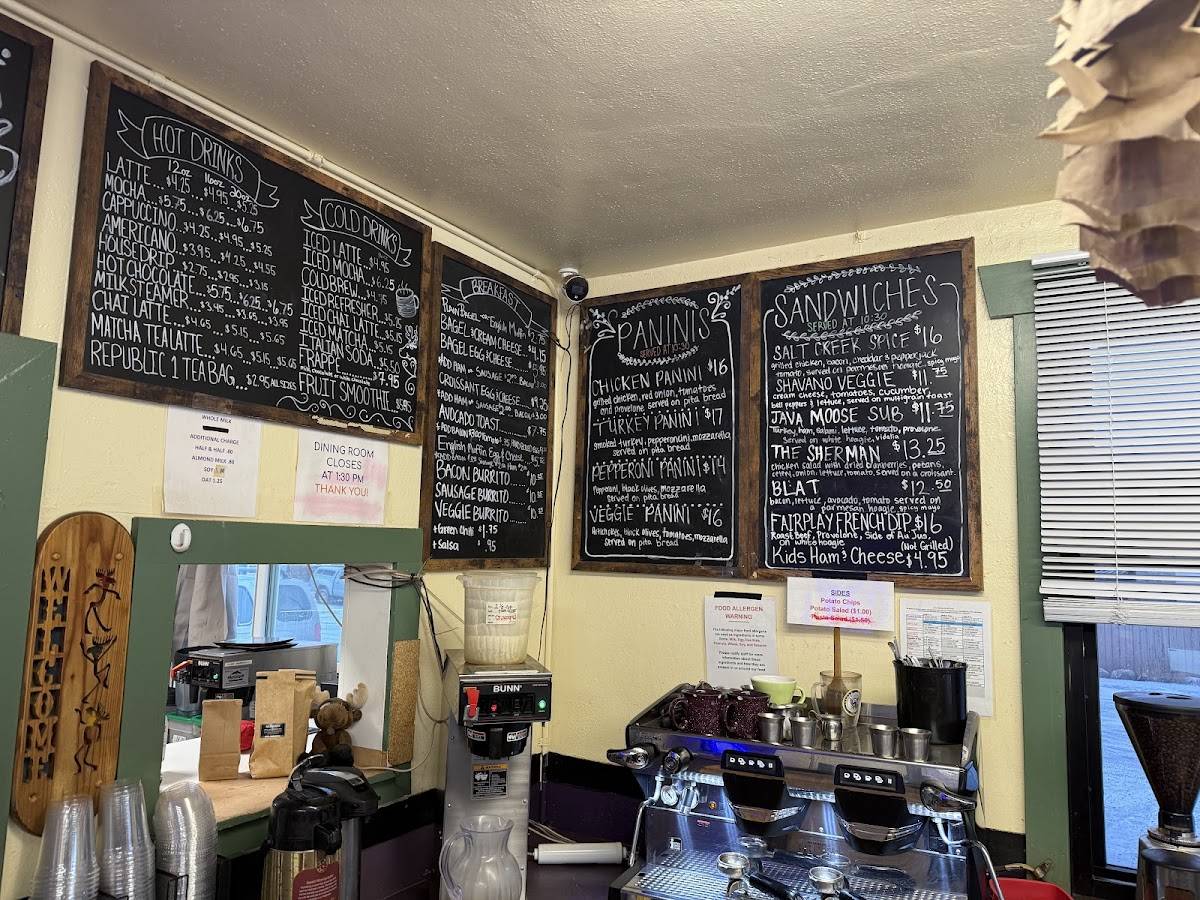 HOT DRINKS
12oz 16oz 20oz
LATTE...$4.25...$4.95...$5.25
MOCHA...$5.75...$6.25...$6.75
CAPPUCCINO...$4.25...$4.95...$5.25
AMERICANO...$3.95...$4.25...$4.55
HOUSE DRIP...$2.75...$2.95...$3.15
HOT CHOCOLATE...$5.75...$6.25...$6.75
MILK STEAMER...$3.45...$3.65...$3.95
CHAI LATTE...$4.65...$5.15...$5.65
MATCHA TEA LATTE...$4.65...$5.15...$5.65
REPUBLIC 1 TEA BAG...$2.95 ALL SIZES
COLD DRINKS
ICED LATTE...$4.95
ICED MOCHA...$6.25
COLD BREW...$4.75
ICED REFRESHER...$5.15
ICED CHAI LATTE...$5.15
ICED MATCHA...$5.15
ITALIAN SODA...$5.50
FRAPPE...$7.95
FRUIT SMOOTHIE...$5.95
BREAKFAST
Plain Bagel or English Muffin
BAGEL & CREAM CHEESE...$4.15
BAGEL EGG & CHEESE
+ADD HAM or SAUSAGE $2.00 BACON $3.00
CROISSANT EGG & CHEESE...$9.35
+ADD HAM or SAUSAGE $2.00 BACON $3.00
AVOCADO TOAST...$7.75
English Muffin Egg & Cheese
BACON BURRITO
SAUSAGE BURRITO
VEGGIE BURRITO
+Green Chili $1.75
+ Salsa .95
PANINIS
SERVED AT 10:30
CHICKEN PANINI $16
grilled chicken, red onion, tomatoes
and provolone served on pita bread
TURKEY PANINI $17
smoked turkey, pepperoncini, mozzarella
served on pita bread
PEPPERONI PANINI $14
Pepperoni, black olives, mozzarella
served on pita bread
VEGGIE PANINI $16
Artichokes, black olives, tomatoes, mozzarella
served on pita bread
SANDWICHES
SERVED AT 10:30
SALT CREEK SPICE $16
grilled chicken, bacon, cheddar & pepper jack
tomato, served on parmesan hoagie, spicy mayo
SHAVANO VEGGIE $11.75
cream cheese, tomatoes, cucumber
bell peppers & lettuce, served on multigrain toast
JAVA MOOSE SUB $11.75
Turkey, ham, salami, lettuce, tomato, provolone.
Served on white hoagie, vidalia
THE SHERMAN $13.25
chicken salad with dried cranberries, pecans,
celery, onion, lettuce, tomato, served on a croissant
BLAT $12.50
bacon, lettuce, avocado, tomato served on
a parmesan hoagie spicy mayo
FAIRPLAY FRENCH DIP $16
Roast Beef, Provolone, Side of Au Jus,
on white hoagie (Not Grilled)
Kids Ham & Cheese $4.95
WHOLE MILK
ADDITIONAL CHARGE
HALF & HALF .80
ALMOND MILK .80
SOY
OAT 1.25
DINING ROOM
CLOSES
AT 1:30 PM
THANK YOU!
WELCOME
BUNN
BUNN
FOOD ALLERGEN
WARNING
Please notify staff for more
information about these
SIDES
Potato Chips
Potato Salad ($1.00)
Pasta Salad ($1.50)